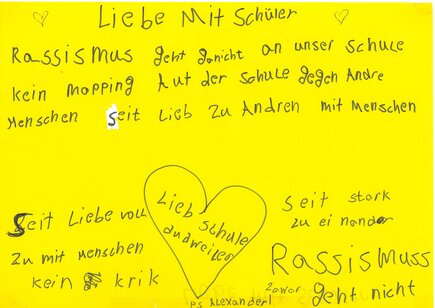 Liebe Mit Schüler
Rassismus geht garnicht an unser Schule
kein mopping Auf der Schule gegen Andre
Menschen Seit Lieb zu Andren mit Menschen
Seit Liebe voll
zu mit menschen
kein krik
Lieb schule
Seit stark
zu ei nander
Rassismuss
geht nicht
P.S Alexander